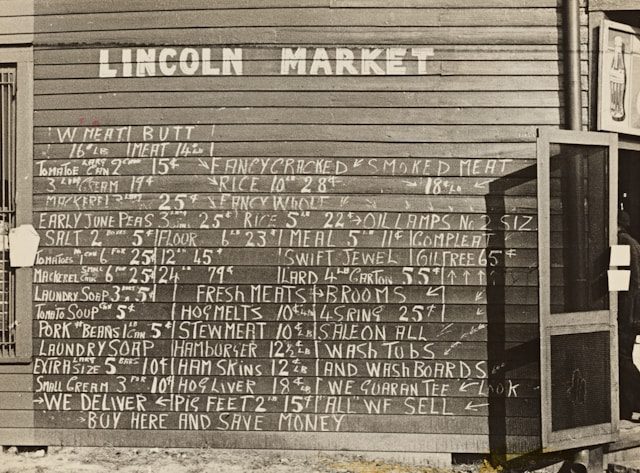 LINCOLN MARKET
W MEAT BUTT
16¢ LB MEAT 14 LB
TOMATOE LARG CAN 2 15¢ FANCY CRACKED SMOKED MEAT
3 CREAM 19¢ RICE 10 LB 28¢ 18¢ LB
MACKEREL 3 25¢ FANCY WHOLE
EARLY JUNE PEAS 3 25¢ RICE 5 LB 22¢ OIL LAMPS No 2 SIZ
SALT 2 BOXES 5¢ FLOUR 6 LB 23¢ MEAL 5 LB 11¢ COMPLEAT
TOMATOES CAN 6 FOR 25¢ 12 LB 45¢ SWIFT JEWEL OIL FREE 65¢
MACKEREL SMALL CAN 6 FOR 25¢ 24 LB 79¢ LARD 4 LB CARTON 55¢
LAUNDRY SOAP 3 BARS 5¢ FRESH MEATS BROOMS
TOMATO SOUP CAN 5¢ HOG MELTS 10¢ LB 4 SPRING 25¢
PORK & BEANS 1 CAN 5¢ STEW MEAT 10¢ LB SALE ON ALL
LAUNDRY SOAP HAMBURGER 12½¢ LB WASH TUBS
EXTRA SIZE LARG 5 BARS 10¢ HAM SKINS 12½ LB AND WASH BOARDS
SMALL CREAM 3 FOR 10¢ HOG LIVER 18¢ LB WE GUARANTEE LOOK
WE DELIVER PIG FEET 2 LB 15¢ ALL WE SELL
BUY HERE AND SAVE MONEY